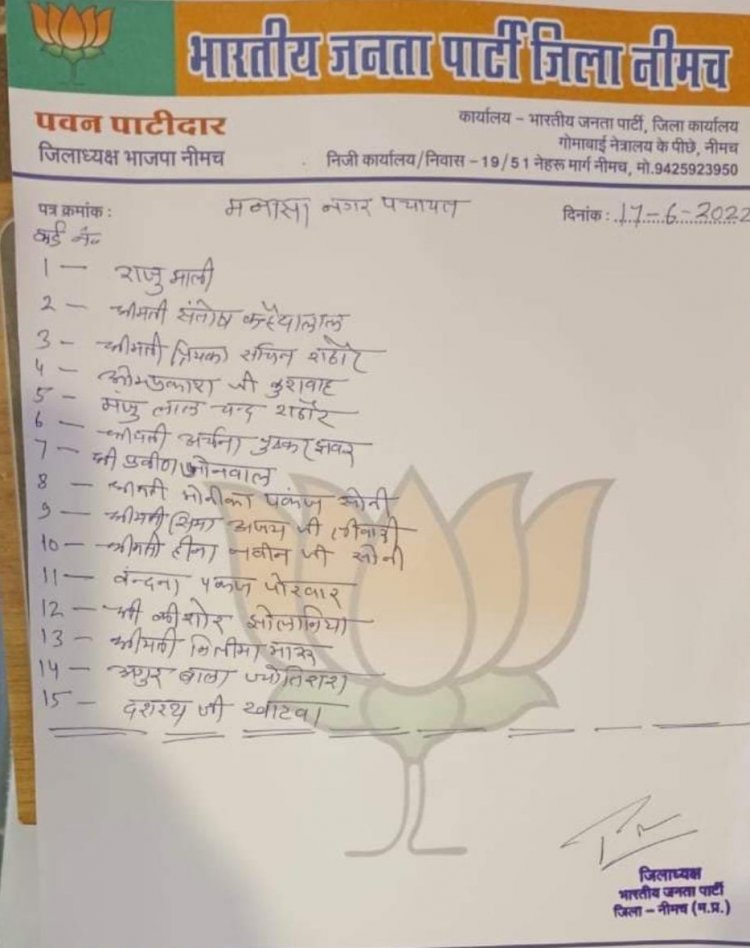 भारतीय जनता पार्टी जिला नीमच
पवन पाटीदार
जिलाध्यक्ष भाजपा नीमच
कार्यालय - भारतीय जनता पार्टी, जिला कार्यालय
गोमाबाई नेत्रालय के पीछे, नीमच
निजी कार्यालय/निवास - 19/51 नेहरू मार्ग नीमच, मो.9425923950
पत्र क्रमांक :
मनासा नगर पंचायत
दिनांक : 17-6-2022
वार्ड नं.
1 - राजु माली
2 - श्रीमती संतोष कन्हैयालाल
3 - श्रीमती प्रियंका सचिन राठौर
4 - ओमप्रकाश जी कुशवाह
5 - मंजु लाल चन्द राठौर
6 - श्रीमती अर्चना झवर
7 - श्री प्रवीण
8 - श्रीमती मोनीका पकंज सोनी
9 - श्रीमती सिमा अजय जी तीवारी
10 - श्रीमती हीना नवीन जी सोनी
11 - वन्दना पकंज पोरवार
12 - श्री कीशोर सोलानिया
13 - श्रीमती निलीमा मारू
14 - अगुर बाला ज्योतिशरा
15 - दशरथ जी खाटवा
जिलाध्यक्ष
भारतीय जनता पार्टी
जिला - नीमच (म.प्र.)